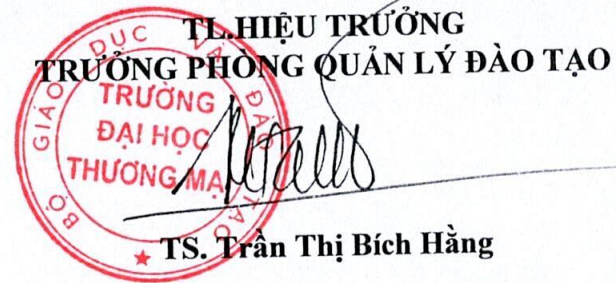 TL.HIỆU TRƯỞNG
TRƯỞNG PHÒNG QUẢN LÝ ĐÀO TẠO
BỘ GIÁO DỤC VÀ ĐÀO TẠO
TRƯỜNG
ĐẠI HỌC
THƯƠNG MẠI
TS. Trần Thị Bích Hằng